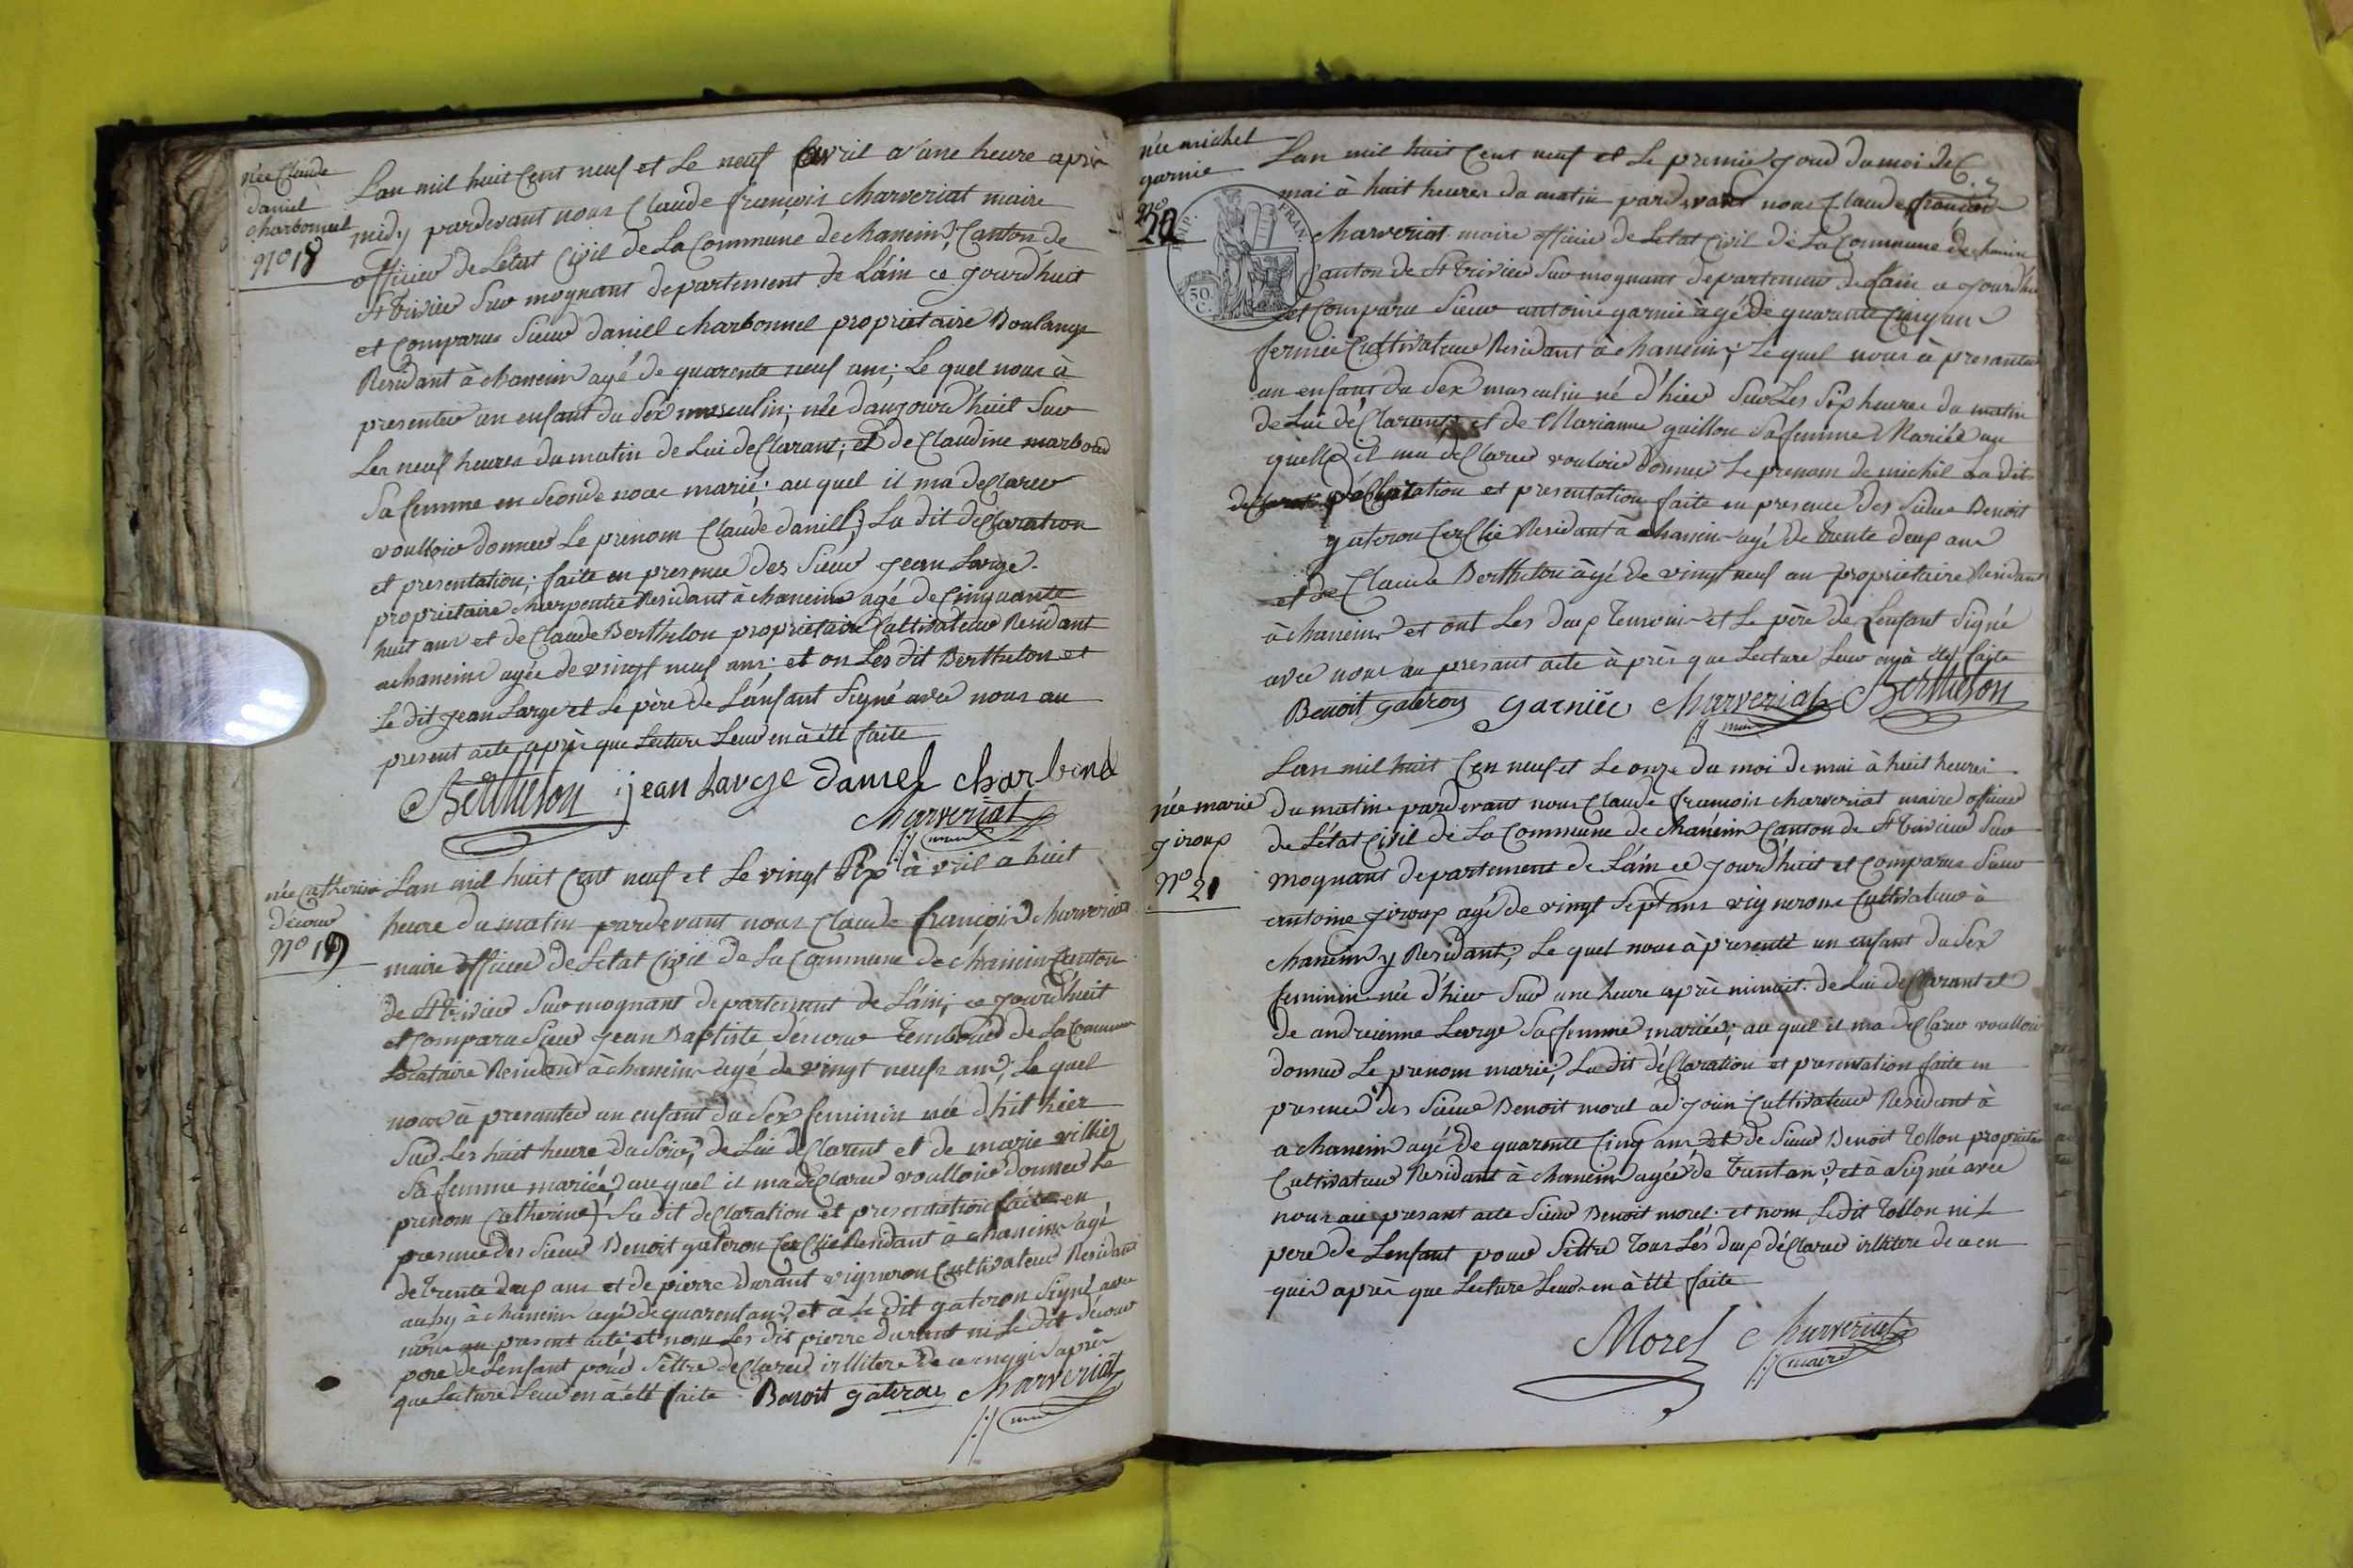 née Claude
daniel
charbonnel
N° 18
Lan mil huit Cent neuf et Le neuf avril a une heure après
midy pardevant nous Claude françois charveriat maire
officier de Letat Civil de La Commune de chaneins, Canton de
St trivier Sur mognant departement de Láin ce jourd'huit
et Comparu Sieur daniell charbonnel proprietaire Boulange
Residant à chaneins agé de quarente neuf ans; Le quel nous à
presenter un enfant du Sex masculin; née daujourd'huit Sur
Les neuf heures du matin de Lui deClarant; et de Claudine
Sa femme en Seconde noce marié; au quel il ma deClarer
voulloir donner Le prenom Claude daniell; La dit deClaration
et presentation; faite en presence des Sieur Jean Large
proprietaire charpentie Residant à chaneins agé de Cinquante
huit ans et de Claude Berthelon proprietaire Cultivateur Residant
a chaneins agée de vingt neuf ans; et on Les dit Berthelon et
Le dit Jean Large et Le père de Lénfant Signé avec nous au
present acte après que Lecture Leur en à été faite
Berthelon jean Large daniel charbonel
Charveriat
maire
née Catherine
décour
N° 19
Lan mil huit Cent neuf et Le vingt Six àvril a huit
heure du matin pardevant nous Claude françois charveriat
maire officier de Letat Civil de La Commune de chaneins Canton
de St trivier Sur mognant departement de Láin; ce jourd'huit
et Comparu Sieur Jean Baptiste décour tembour de La Commune
Locataire Residant à chaneins agé de vingt neufs ans; Le quel
nous à presenter un enfant du Sex feminin née dhit hier
Sur Les huit heure du Soir; de Lui deClarent et de marie villiez
Sa femme mariée au quel il ma deClarer voulloir donner Le
prenom Catherine; La dit deClaration et presentation faite en
presence des Sieur Benoit gateron CerClie Residant à chaneins agé
de trente deux ans et de pierre durant vigneron Cultivateur Residant
aussy à chaneins agé de quarentans, et à Le dit gateron Signé avec
nous au present acte; et nom Les dit pierre durant ni Le dit décour
pere de Lenfant pour Settre deClarer illitere de ce enquis après
que Lecture Leur en à été faite Benoit gateron Charveriat
maire
née michel
garnie
N° 20
IMP. FRAN.
50 C.
Lan mil huit Cent neuf et Le premie jour du moi de
mai à huit heures du matin pardevant nous Claude françois
charveriat maire officie de Letat Civil de La Commune de chanein
Canton de St trivier Sur mognant departement de Lain ce jourd'hui
et Comparu Sieur antoine garnie àgé de quarente Cinq ans
fermie Cultivateur Residant à chaneins; Le quel nous à presanter
un enfant du Sex masculin né d'hier Sur Les Six heures du matin
de Lui déClarant; et de Marianne guillon Sa femme Mariée au
quelle il ma deClarer vouloir donner Le prenom de michel La dit
et presentation faite en presence des Sieur Benoit
gateron CerClie Residant à chanein agé de trente deux ans
et de Claude Berthelon àgé de vingt neuf an proprietaire Residant
à chaneins et ont Les deux temoins et Le père de Lenfant Signé
avec nous au presant acte à près que Lecture Leur en à été faite
Benoit gateron garnier Charveriat Berthelon
maire
née marie
giroup
N° 21
Lan mil huit Cen neuf et Le onze du moi de mai à huit heures
du matin pardevant nous Claude françois charveriat maire officier
de Létat Civil de La Commune de chánein Canton de St trivier Sur
mognant departement de Láin ce jourd'huit et Comparu Sieur
antoine giroup agé de vingt Sept ans vigneron Cultivateur à
chanein y Residant; Le quel nous à presenté un enfant du Sex
feminin née d'hier Sur une heure après minuit de Lui deClarant et
de andreienne Large Sa femme mariée; au quel il ma deClarer voulloir
donner Le prenom marie; La dit déClaration et presentation faite en
presence des Sieur Benoit morel adjoin Cultivateur Residant à
a chanein agé de quarente Cinq ans et de Sieur Benoit tollon proprietaire
Cultivateur Residant à chanein agée de trentans; et à Signée avec
nous au presant acte Sieur Benoit morel et nom Le dit tollon ni L
pere de Lenfant pour Settre tous Les deux déClarer illitere de ce en
quis après que Lecture Leur en à été faite
Morel Charveriat
maire